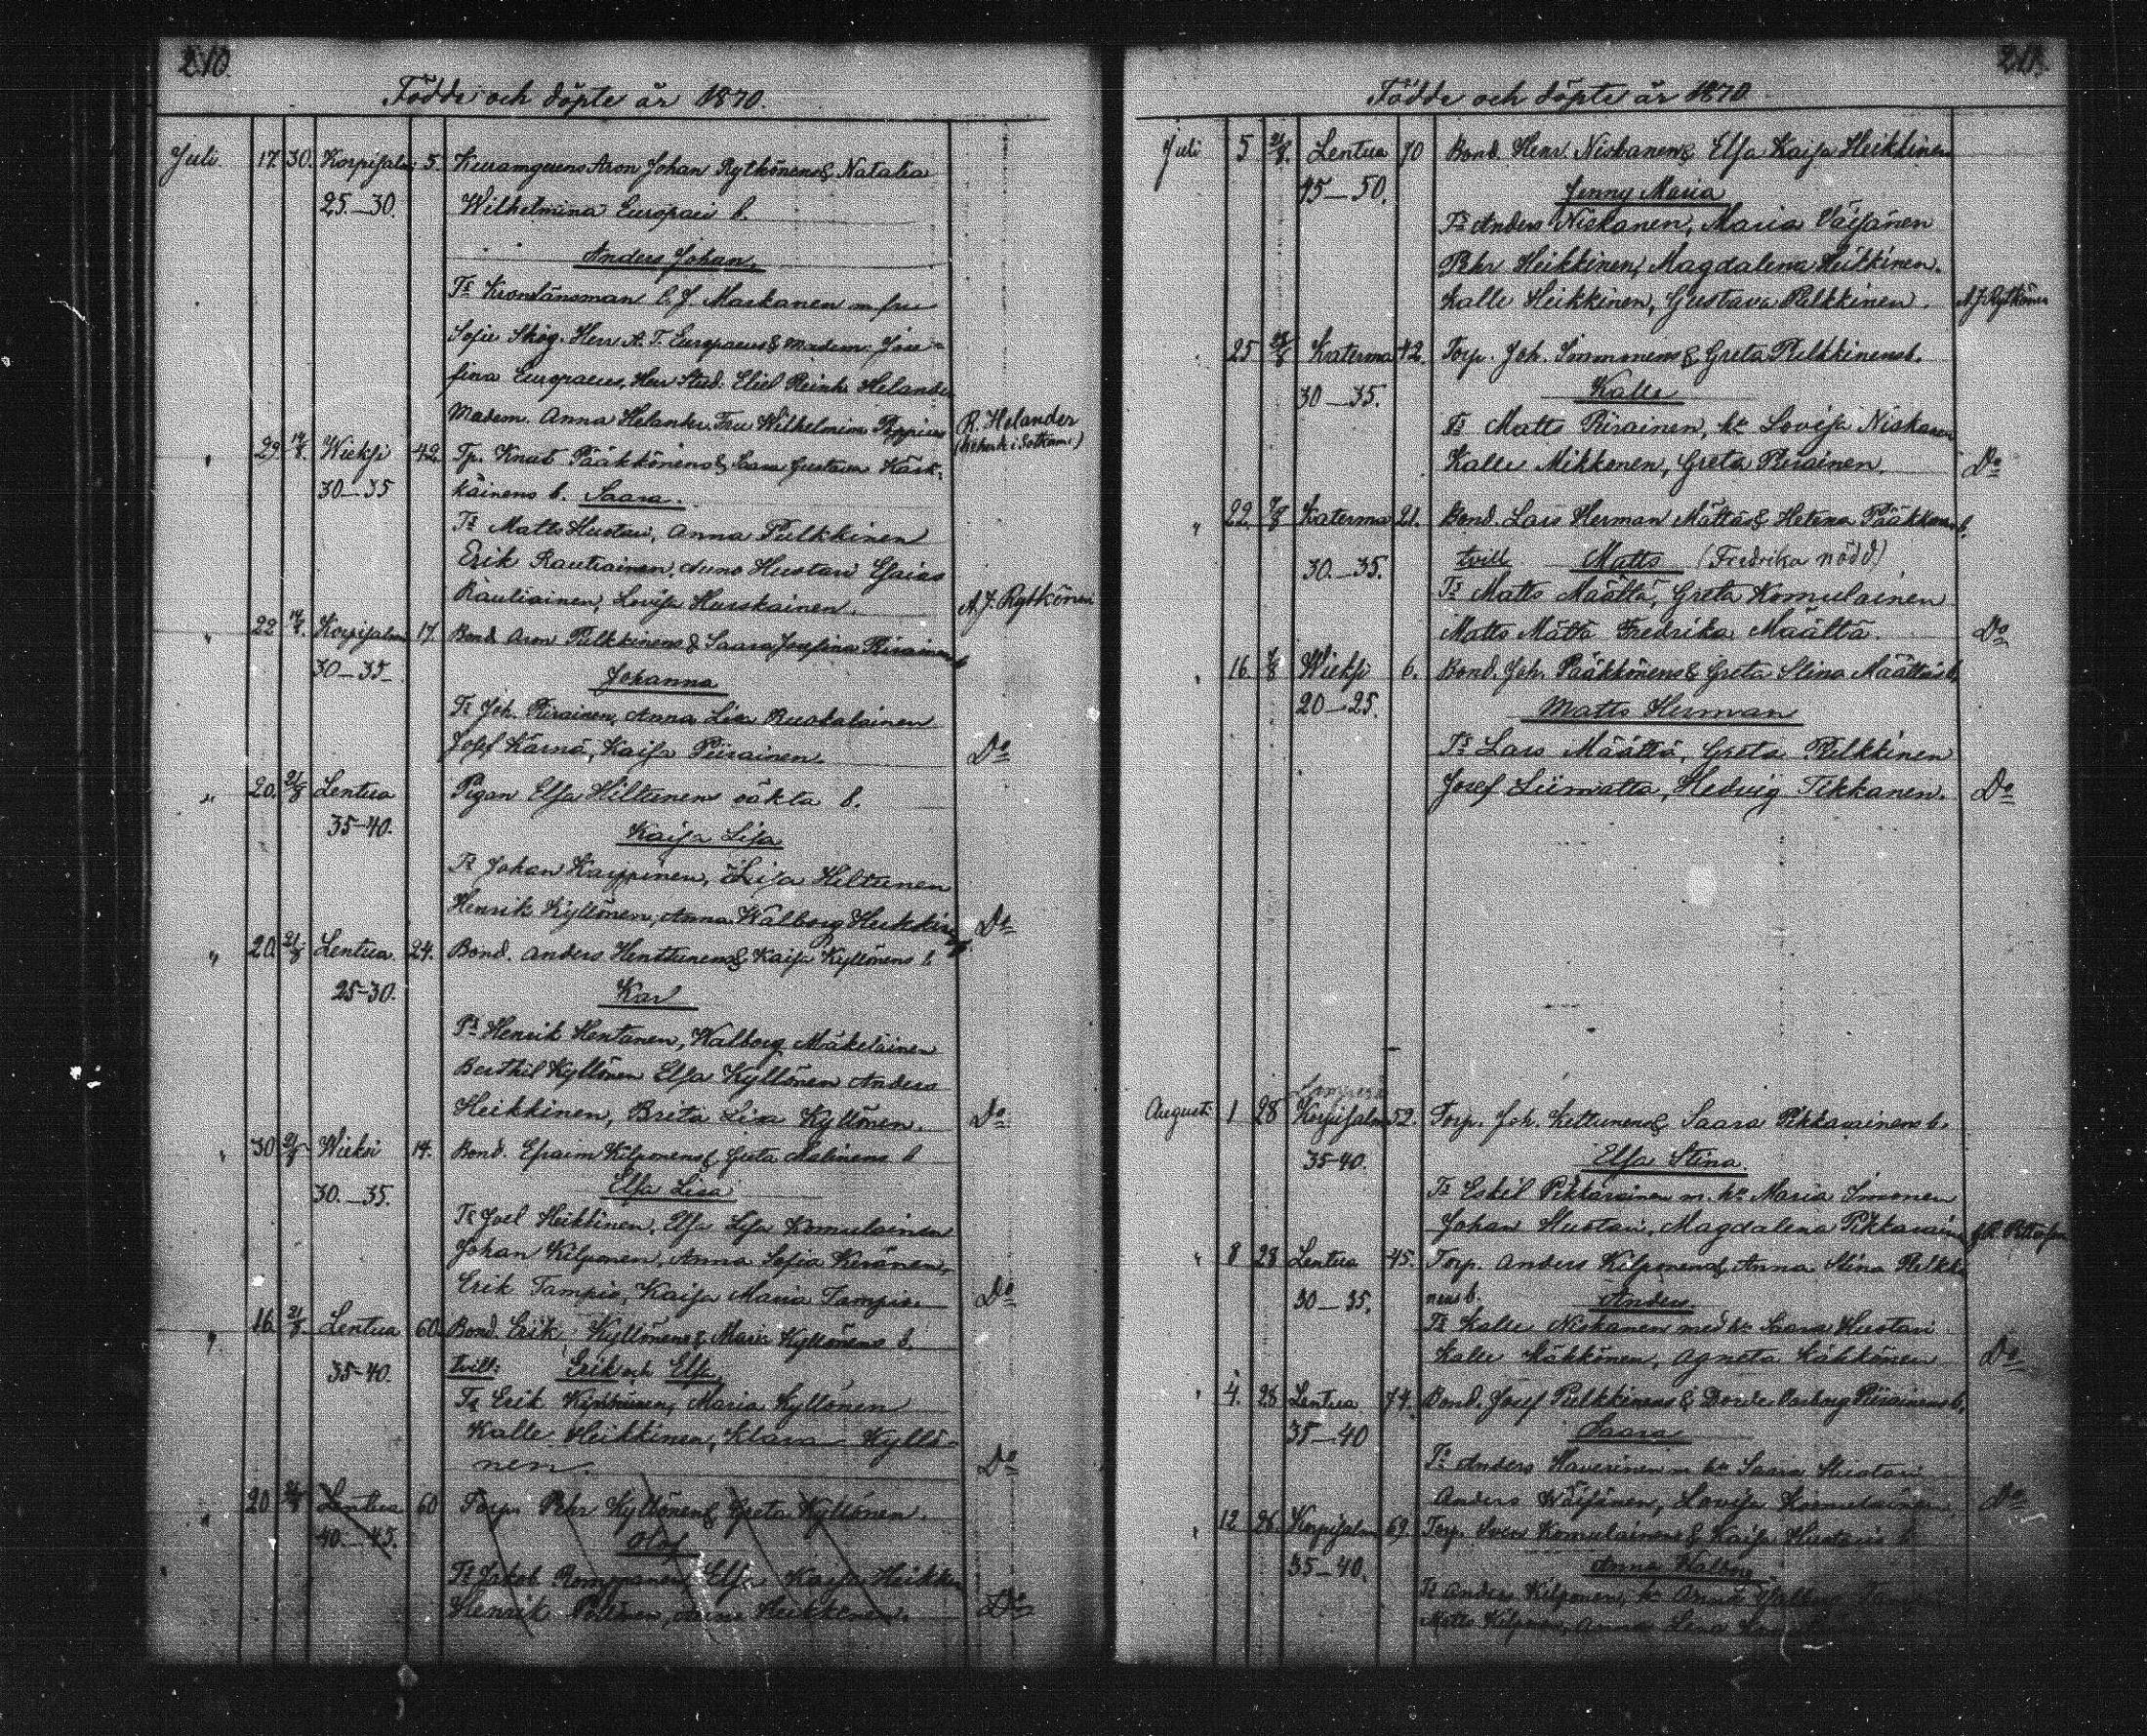 210.
Födde och döpte år 1870.
Juli 17. 30. Korpisalmi 5. Aron Johan Rytkönens & Natalia
25.—30. Wilhelmina Europæi b.
Anders Johan,
Ts Kronlänsman C. J. Markanen m fru
Sofie Skog. Herr A. T. Europaeus & madem. Jose-
fina Europaeus, Herr Stud. Eliel Reinh. Helander
Madem. Anna Helander, Fru Wilhelmina R. Helander
" 29. 14/8. Wieksi 42. Tp. Knut Pääkkönens & Saara Gustava Kärk-
30—35 käinens b. Saara.
Ts Matts Hustari, Anna Pulkkinen
Erik Rautiainen, Hustari Esaias
Rautiainen, Lovisa Hurskainen. A. J. Rytkönen
" 22 14/8. Korpisalmi 17. Bond. Aron Pulkkinens & Saara Josefina Piirainens b
30—35 Johanna
Ts Joh. Piirainen, Anna Lisa Ruokolainen
Josef Kärnä, Kaisa Piirainen. Do
" 20. 21/8 Lentua Pigan Elsa Hiltunens oäkta b.
35-40. Kaisa Lisa
Ts Johan Karppinen, Lisa Hiltunen
Henrik Kyllönen, Anna Walborg Heikkinen Do
" 20. 21/8 Lentua. 24. Bond. Anders Henttunens & Kaisa Kyllönens b
25-30. Karl
Ts Henrik Hentunen, Walborg Mäkeläinen
Berthil Kyllönen Elsa Kyllönen Anders
Heikkinen, Brita Lisa Kyllönen. Do
" 30 21/8 Wieksi 14. Bond. Efraim Kilponens & Greta Malinens b
30.—35. Elsa Lisa
Ts Joel Heikkinen, Elsa Lisa Komulainen
Johan Kilponen, Anna Sofia Keränen,
Erik Tampio, Kaisa Maria Tampio. Do
" 16. 21/8. Lentua 60. Bond. Erik Kyllönens & Maria Kyllönens b.
35-40. tvill: Erik och Elsa,
Ts Erik Maria Kyllönen
Kalle Heikkinen, Klara Kyllö-
nen. Do
" 20 21/8 Lentua 60 Torp. Pehr Kyllönens & Greta Kyllönen.
40.—45. Olof
Ts Jakob Romppanen, Elsa Kaisa Heikkinen
Henrik Heikkinen. Do
211.
Födde och döpte år 1870
Juli 5 21/8. Lentua 70 Bond. Henr. Niskanens & Elsa Kaisa Heikkinen
45—50. Jenny Maria
Ts Anders Niskanen, Maria Väisänen
Pehr Heikkinen, Magdalena Heikkinen.
Kalle Heikkinen, Gustava Pulkkinen. A. J. Rytkönen
" 25 Katerma 42. Torp. Joh. Immonens & Greta Pulkkinens b.
30—35. Kalle
Ts Matts Piirainen, hu Lovisa Niskanen
Kalle Mikkonen, Greta Piirainen. Do
" 22. Katerma 21. Bond. Lars Herman Mättäs & Helena Pääkkönens b.
30.—35. tvill Matts (Fredrika nödd)
Ts Matts Määttä, Greta Komulainen
Matts Mättä Fredrika Määttä. Do
" 16. Wieksi 6. Bond. Joh. Pääkkönens & Greta Stina Määttäs b.
20—25. Matts Herman
Ts Lars Määttä, Greta Pulkkinen
Josef Liimatta, Hedvig Tikkanen. Do
Augusti 1 28 Korpisalmi 52. Torp. Joh. Kettunens & Saara Pikkarainens b.
35-40. Elsa Stina
Ts Eskil Pikkarainen m. hu Maria Immonen
Johan Hustari, Magdalena Pikkarainen
" 8 28 Lentua 45. Torp. Anders Kilponens & Anna Stina Pulkki-
30—35. nens b. Anders
Ts Kalle Niskanen med hu Saara Hustari
Kalle Käkkönen, Agneta Käkkönen Do
" 4. 28 Lentua 74. Bond. Josef Pulkkinens & Piirainens b.
35—40 Saara
Ts Anders Haverinen m hu Saara Hustari
Anders Väisänen, Lovisa Komulainen Do
" 12 26 Korpisalmi 69. Torp. Komulainens & Kaisa Hustaris b
35—40. Anna Walborg
Ts Anders Kilponen, hu Anna Walborg
Matts Kilponen, Anna Lena